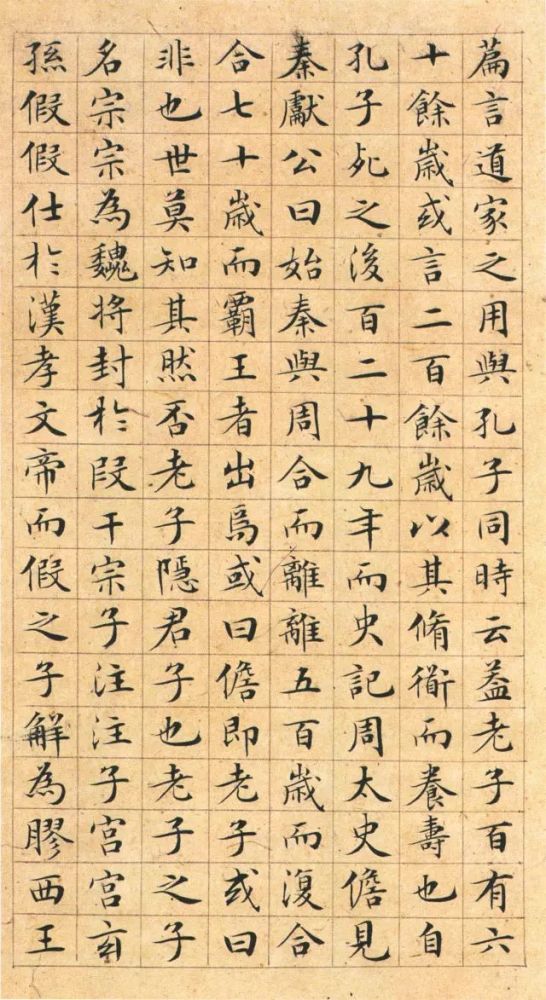 篇言道家之用與孔子同時云葢老子百有六
十餘歲或言二百餘歲以其脩衜而養壽也自
孔子死之後百二十九年而史記周太史儋見
秦獻公曰始秦與周合而離離五百歲而復合
合七十歲而霸王者出焉或曰儋即老子或曰
非也世莫知其然否老子隱君子也老子之子
名宗宗為魏将封於段干宗子注注子宮宮玄
孫假假仕於漢孝文帝而假之子解為膠西王